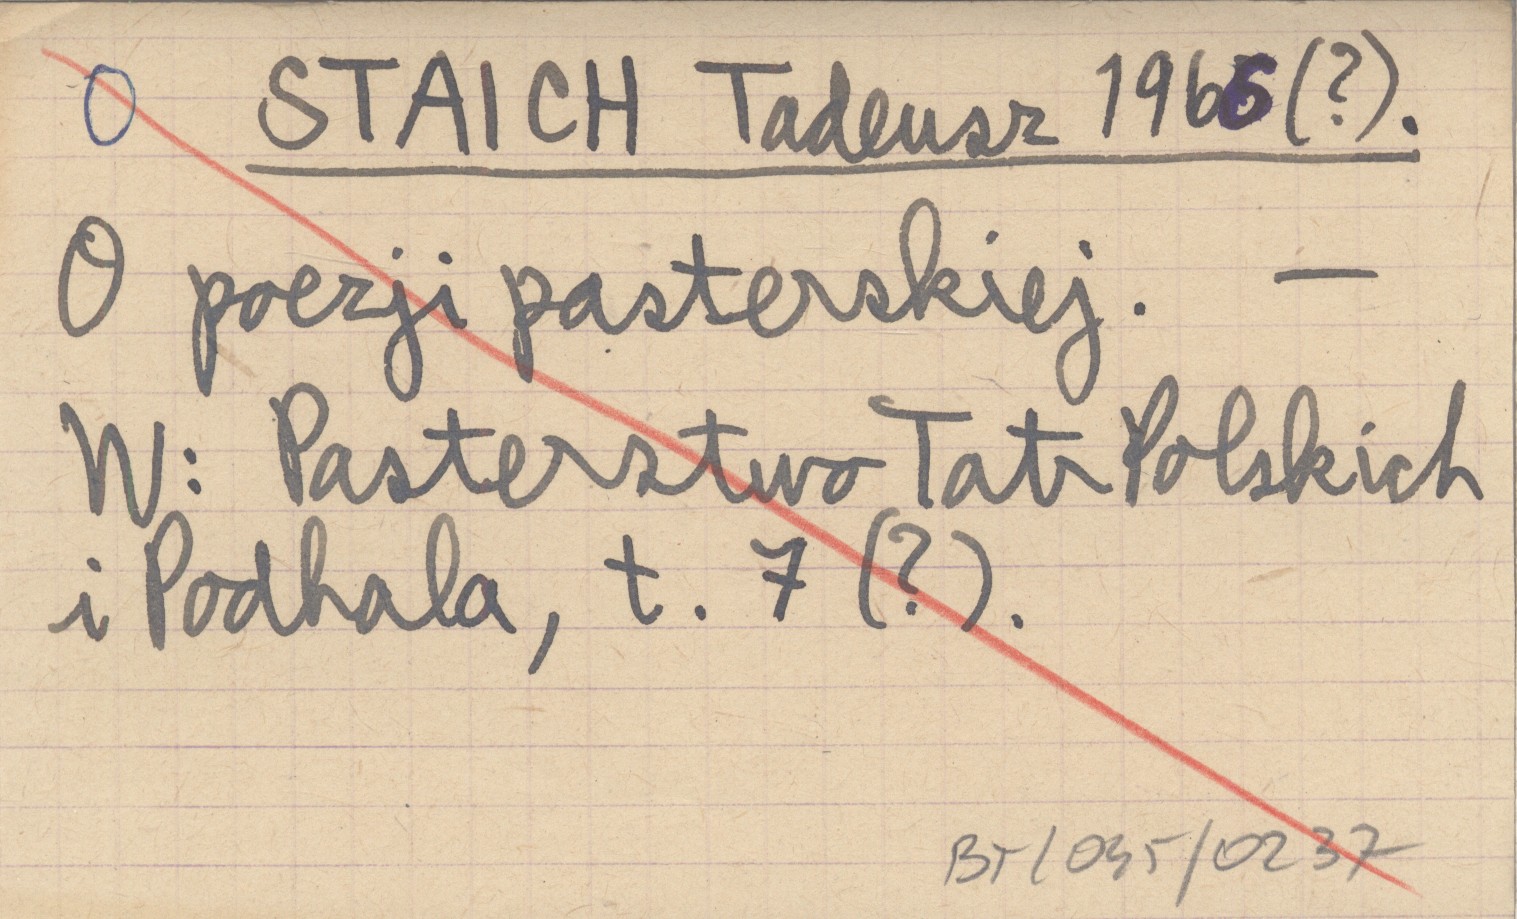 O STAICH Tadeusz 1966 (?).
O poezji pasterskiej. —
W: Pasterstwo Tatr Polskich
i Podhala, t. 7 (?).
BT/035/0237